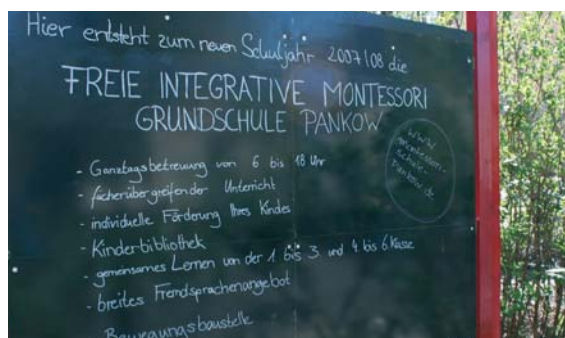 Hier entsteht zum neuen Schuljahr 2007/08 die
FREIE INTEGRATIVE MONTESSORI
GRUNDSCHULE PANKOW
- Ganztagsbetreuung von 6 bis 18 Uhr
- fächerübergreifender Unterricht
- individuelle Förderung Ihres Kindes
- Kinderbibliothek
- gemeinsames Lernen von der 1. bis 3. und 4. bis 6. Klasse
- breites Fremdsprachenangebot
Bewegungsbaustelle
www.
montessori-
schule-
pankow.de